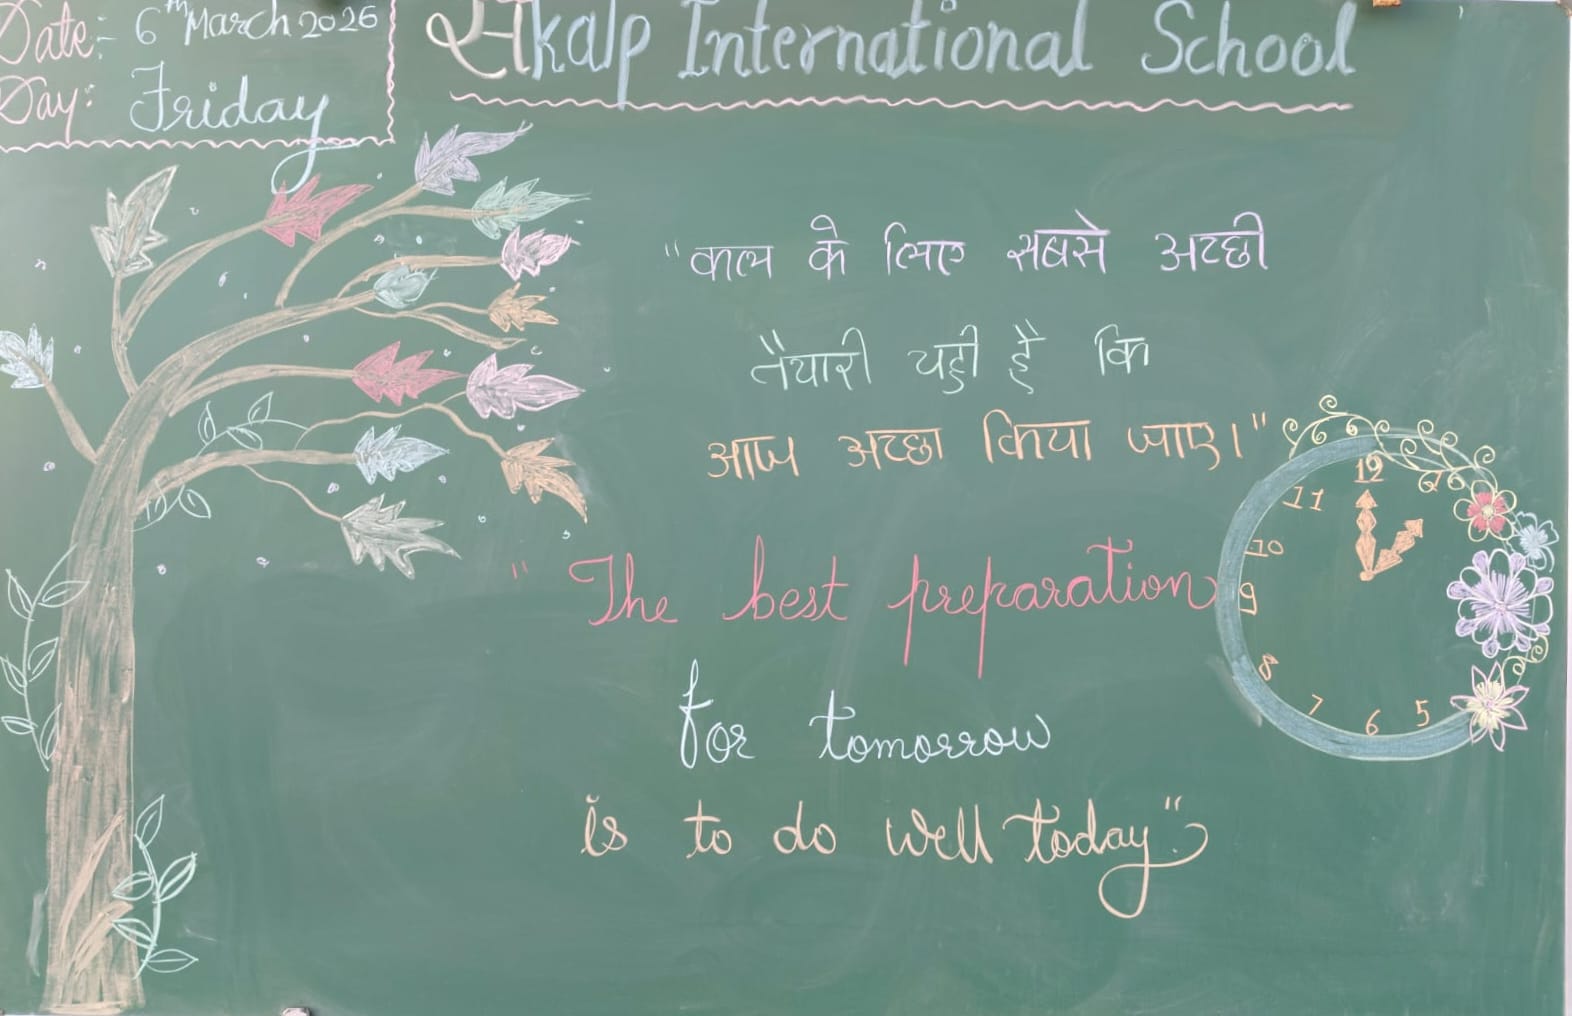 Date:- 6th March 2026
Day: Friday
संkalp International School
"कल के लिए सबसे अच्छी
तैयारी यही है कि
आज अच्छा किया जाए।"
"The best preparation
for tomorrow
is to do well today"
12
11
10
9
8
7
6
5